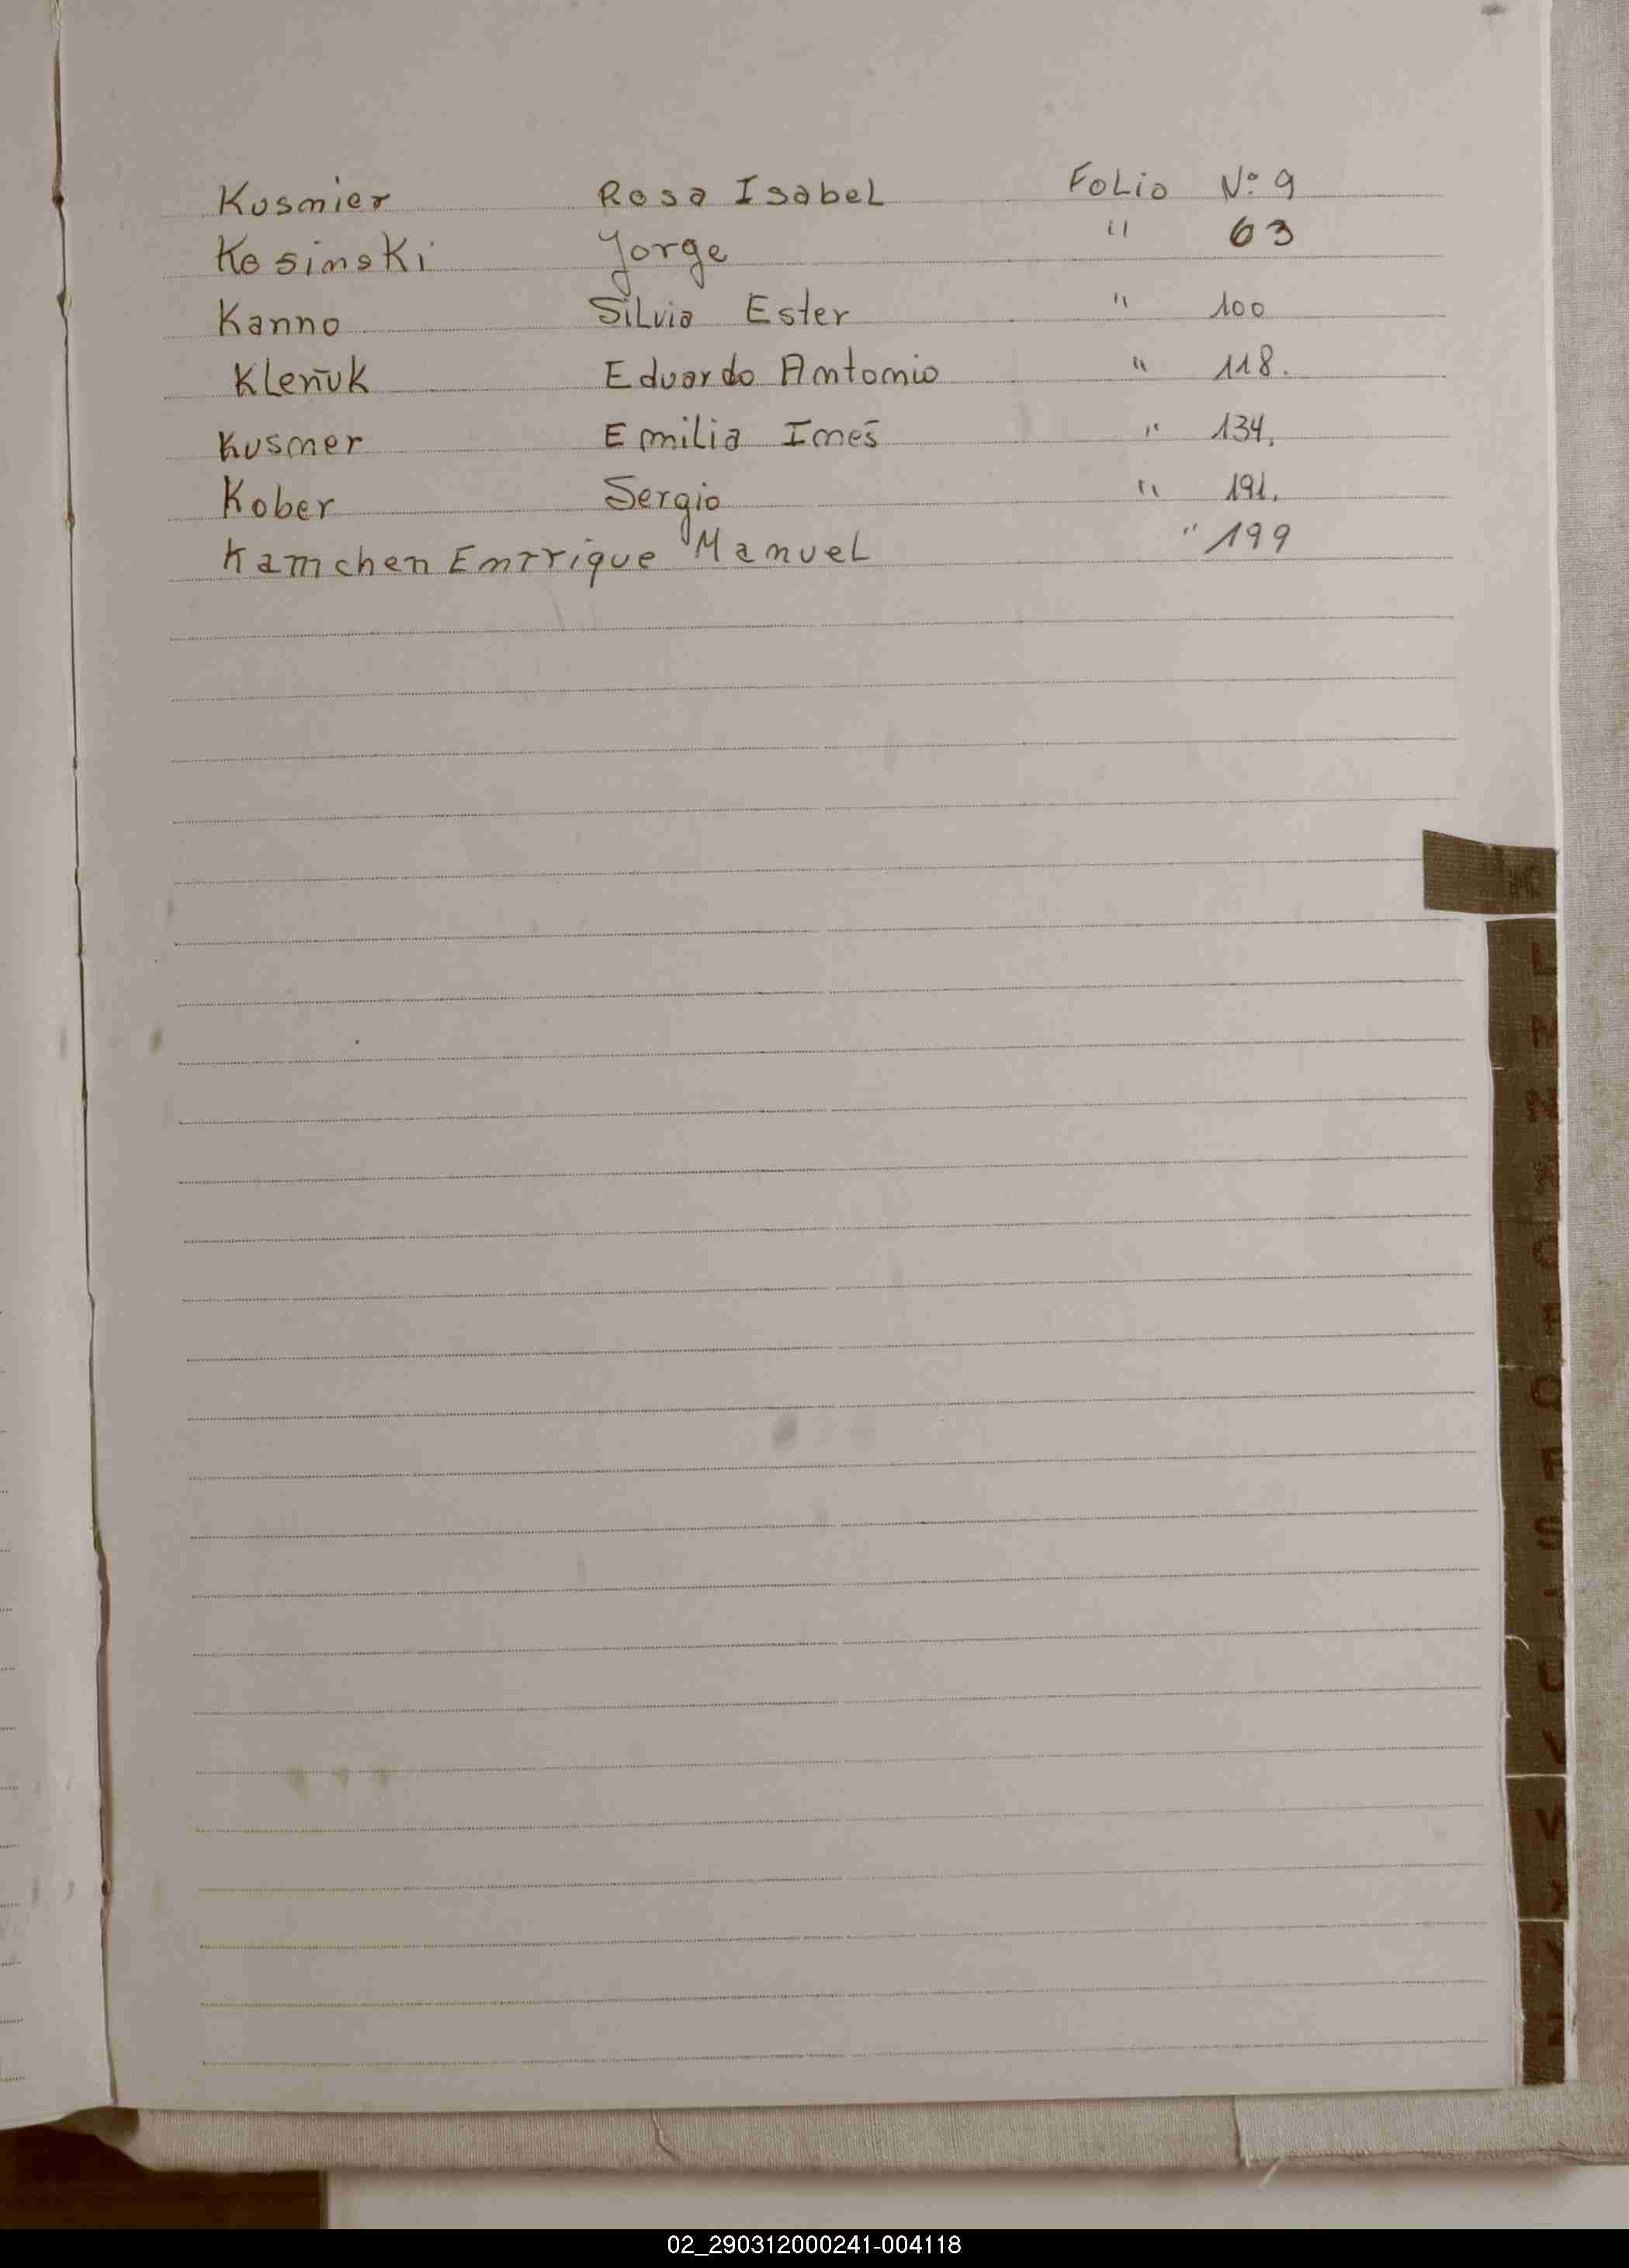 Kusmier Rosa Isabel Folio Nº 9
Kosinski Jorge " 63
Kanno Silvia Ester " 100
Kleñuk Eduardo Antonio " 118.
Kusmer Emilia Inés " 134.
Kober Sergio " 191.
Kamchen Enrrique Manuel " 199
K
L
M
N
Ñ
O
P
Q
R
S
T
U
V
W
X
Y
Z
02_290312000241-004118